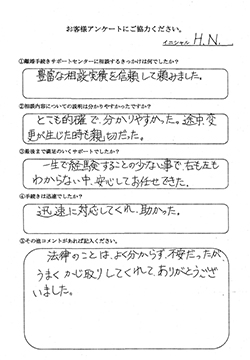 お客様アンケートにご協力ください。
イニシャル H.N.
①離婚手続きサポートセンターに相談するきっかけは何でしたか？
豊富な相談実績を信頼して頼みました。
②相談内容についての説明は分かりやすかったですか？
とても的確で、分かりやすかった。途中、変
更が生じた時も親切だった。
③最後まで満足のいくサポートでしたか？
一生で経験することの少ない事で、右も左も
わからない中、安心してお任せできた。
④手続きは迅速でしたか？
迅速に対応してくれ、助かった。
⑤その他コメントがあれば記入ください。
法律のことは、よく分からず、不安だったが、
うまくかじ取りしてくれて、ありがとうござ
いました。